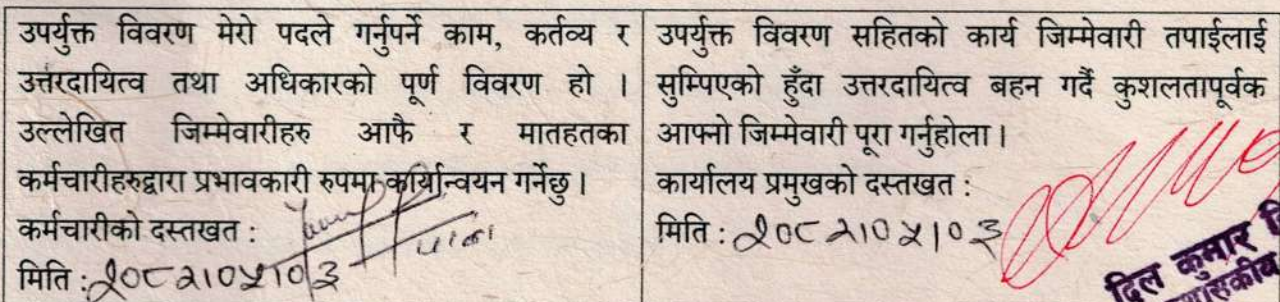 उपर्युक्त विवरण मेरो पदले गर्नुपर्ने काम, कर्तव्य र
उत्तरदायित्व तथा अधिकारको पूर्ण विवरण हो ।
उल्लेखित जिम्मेवारीहरु आफै र मातहतका
कर्मचारीहरुद्वारा प्रभावकारी रुपमा कार्यान्वयन गर्नेछु ।
कर्मचारीको दस्तखत :
मिति : २०८२।०५।०३
उपर्युक्त विवरण सहितको कार्य जिम्मेवारी तपाईलाई
सुम्पिएको हुँदा उत्तरदायित्व बहन गर्दै कुशलतापूर्वक
आफ्नो जिम्मेवारी पूरा गर्नुहोला ।
कार्यालय प्रमुखको दस्तखत :
मिति : २०८२।०५।०३
दिल कुमार